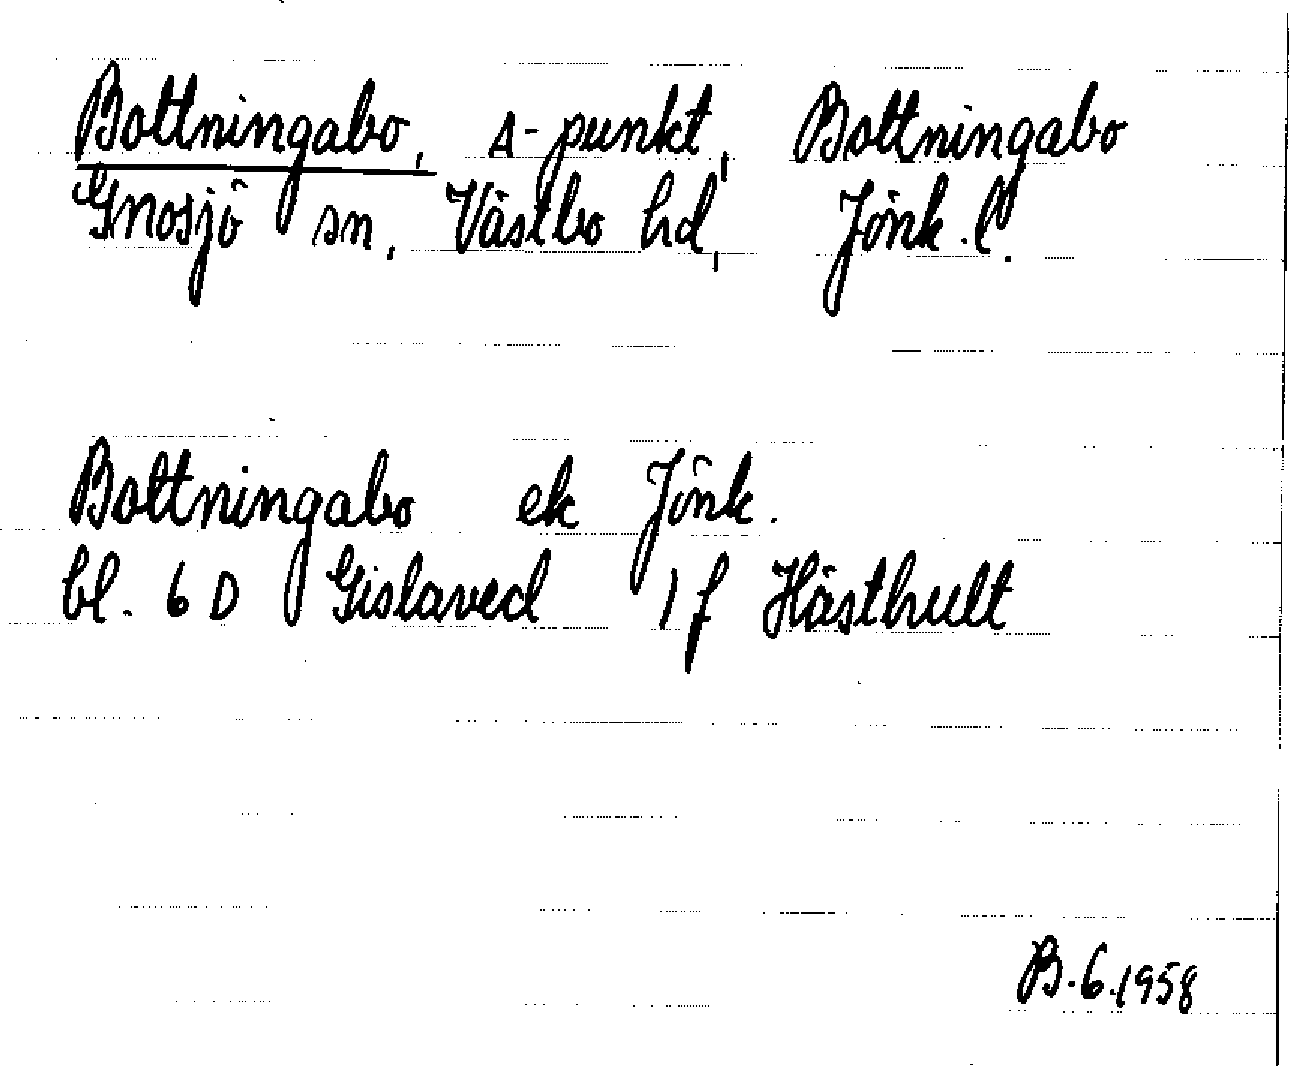 Bottningabo, A-punkt, Bottningabo
Gnosjö sn, Västbo hd, Jönk. l.
Bottningabo ek Jönk.
bl. 6 D Gislaved 1 f Hästhult
B. 6. 1958